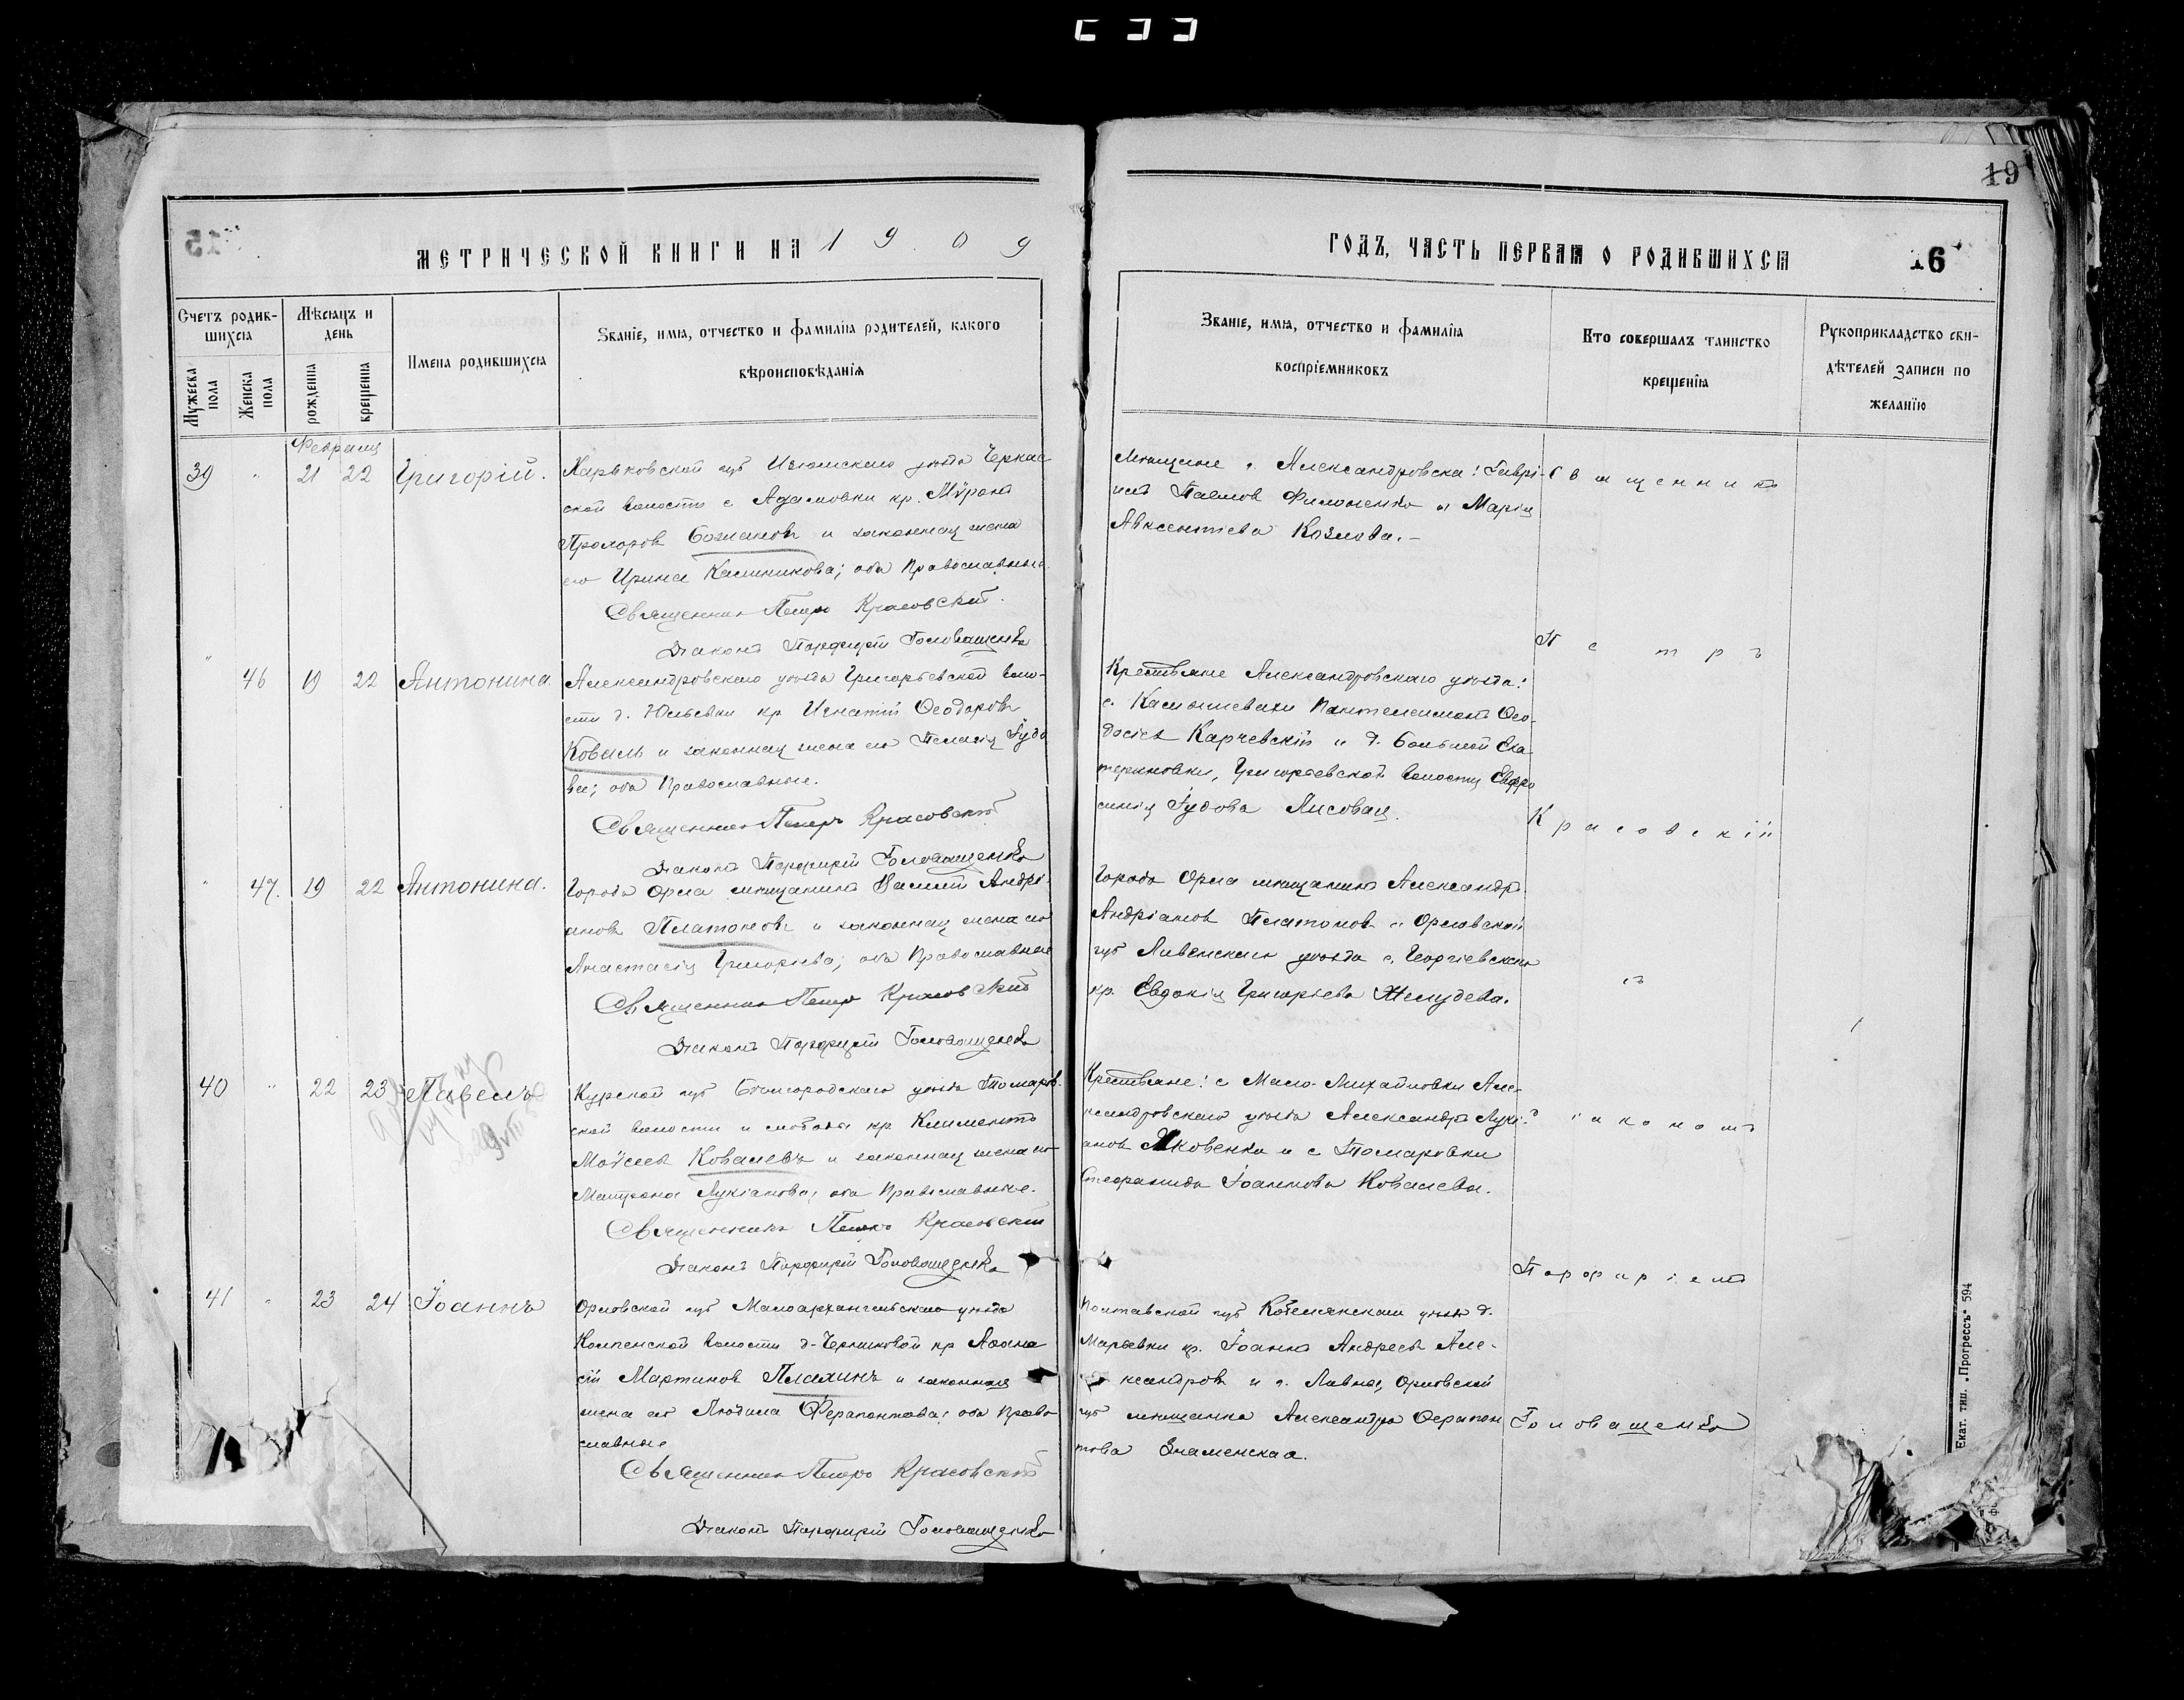 19
15
МЕТРИЧЕСКОЙ КНИГИ НА 1909
ГОДЪ, ЧАСТЬ ПЕРВАЯ О РОДИВШИХСЯ
16
Счетъ родив-
шихся
Мужеска пола
Женска пола
Мѣсяцъ и
день
рожденія
крещенія
Имена родившихся
Званіе, имя, отчество и фамилія родителей, какого
вѣроисповѣданія
Званіе, имя, отчество и фамилія
воспріемниковъ
Кто совершалъ таинство
крещенія
Рукоприкладство сви-
дѣтелей записи по
желанію
Февраля
39 " 21 22 Григорій.
Харьковской губ Изюмскаго уѣзда Черкас
ской волости с Адамовки кр. Мѵронъ
Прохоровъ Божановъ и законная жена
его Ирина Калинникова; оба Православные.
Священникъ Петръ Красовскій.
Діаконъ Порфирій Головащенко
Мѣщане г. Александровска: Гаврі-
илъ Павлов Филоненко и Марія
Авксентіева Козлова.-
Священникъ
Петръ
" 46 19 22 Антонина.
Александровскаго уѣзда Григорьевской воло-
сти д. Юльевки кр Игнатій Ѳеодоровъ
Коваль и законная жена его Пелагія Іудо
ва; оба Православные.
Священникъ Петръ Красовскій
Діаконъ Порфирій Головащенко
Крестьяне Александровскаго уѣзда:
с. Камышевахи Пантелеимонъ Ѳео-
досіевъ Карчевскій и д. Большой Ека
териновки, Григорьевской волости Евфро
синія Іудова Лисовая.
Красовскій
" 47. 19 22 Антонина.
Города Орла мѣщанинъ Василій Андрі-
ановъ Платоновъ и законная жена его
Анастасія Григорьева; оба Православные
Священникъ Петръ Красовскій
Діаконъ Порфирій Головащенко
Города Орла мѣщанинъ Александръ
Андріановъ Платоновъ и Орловской
губ Ливенскаго уѣзда с. Георгіевскаго
кр. Евдокія Григорьева Желудева.
съ
40 " 22 23 Павелъ
Курской губ Бѣлгородскаго уѣзда Томаров.
ской волости и слободы кр Климентъ
Моѵсеевъ Ковалевъ и законная жена его
Матрона Лукіанова; оба Православные.
Священникъ Петръ Красовскій
Діаконъ Порфирій Головащенко
Крестьяне: с Мало-Михайловки Але-
ксандровскаго уѣзда Александръ Лукі-
ановъ Яковенко и с Томаровки
Стефанида Іоаннова Ковалева.
Діакономъ
Порфиріемъ
41 " 23 24 Іоаннъ
Орловской губ Малоархангельскаго уѣзда
Колпенской волости д. Черниковой кр Аѳана
сій Мартиновъ Плахинъ и законная
жена его Людмила Ферапонтова; оба Право
славные
Священникъ Петръ Красовскій
Діаконъ Порфирій Головащенко
Полтавской губ Кобелякскаго уѣзда д.
Марьевки кр. Іоаннъ Андреевъ Але-
ксандровъ и г. Ливнъ, Орловской
губ мѣщанка Александра Ѳерапон
това Знаменская.
Головащенко
Екат. тип. „Прогрессъ" 594